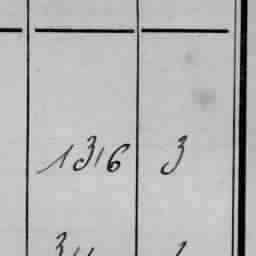 1316 3